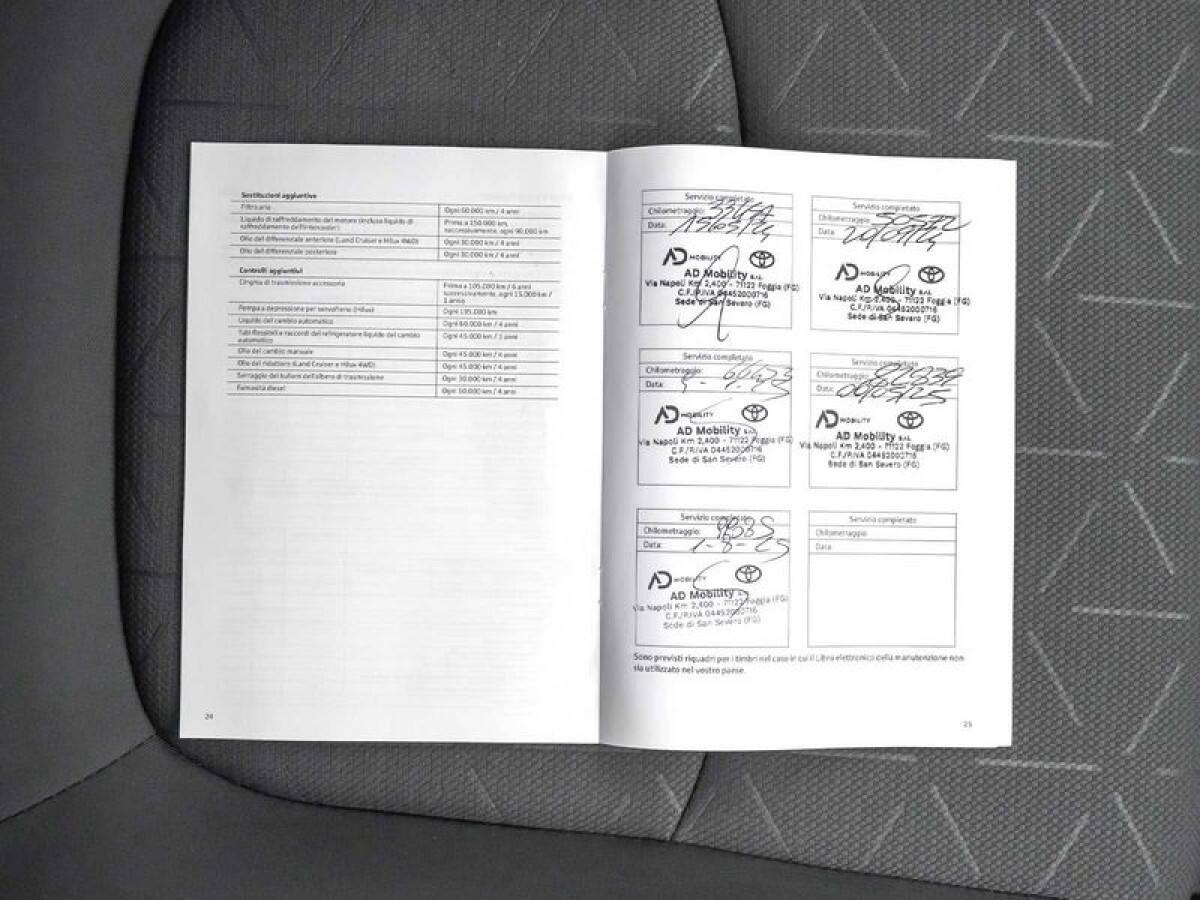 Sostituzioni aggiuntive
Filtro aria
Ogni 60.000 km / 4 anni
Liquido di raffreddamento del motore (incluso liquido di raffreddamento dell'intercooler)
Prima a 150.000 km, successivamente, ogni 90.000 km
Olio del differenziale anteriore (Land Cruiser e Hilux 4WD)
Ogni 30.000 km / 4 anni
Olio del differenziale posteriore
Ogni 30.000 km / 4 anni
Controlli aggiuntivi
Cinghia di trasmissione accessoria
Prima a 105.000 km / 6 anni
successivamente, ogni 15.000 km /
1 anno
Pompa a depressione per servofreno (Hilux)
Ogni 195.000 km
Liquido del cambio automatico
Ogni 60.000 km / 4 anni
Tubi flessibili e raccordi del refrigeratore liquido del cambio
automatico
Ogni 45.000 km / 3 anni
Olio del cambio manuale
Ogni 45.000 km / 4 anni
Olio del riduttore (Land Cruiser e Hilux 4WD)
Ogni 45.000 km / 4 anni
Serraggio dei bulloni dell'albero di trasmissione
Ogni 30.000 km / 4 anni
Fumosità diesel
Ogni 30.000 km / 4 anni
24
Servizio completato
Chilometraggio:
Data: 15/03/24
AD MOBILITY
AD Mobility S.r.l.
Via Napoli Km 2,400 - 71122 Foggia (FG)
C.F./P.IVA 04452000716
Sede di San Severo (FG)
Servizio completato
Chilometraggio: 50572
Data: 20/09/24
AD MOBILITY
AD Mobility S.r.l.
Via Napoli Km 2,400 - 71122 Foggia (FG)
C.F./P.IVA 04452000716
Sede di San Severo (FG)
Servizio completato
Chilometraggio:
Data:
AD MOBILITY
AD Mobility S.r.l.
Via Napoli Km 2,400 - 71122 Foggia (FG)
C.F./P.IVA 04452000716
Sede di San Severo (FG)
Servizio completato
Chilometraggio:
Data:
AD MOBILITY
AD Mobility S.r.l.
Via Napoli Km 2,400 - 71122 Foggia (FG)
C.F./P.IVA 04452000716
Sede di San Severo (FG)
Servizio completato
Chilometraggio:
Data: 1-8-25
AD MOBILITY
AD Mobility
Via Napoli Km 2,400 - 71122 Foggia (FG)
C.F./P.IVA 04452000716
Sede di San Severo (FG)
Servizio completato
Chilometraggio:
Data:
Sono previsti riquadri per i timbri nel caso in cui il Libro elettronico della manutenzione non
sia utilizzato nel vostro paese.
25